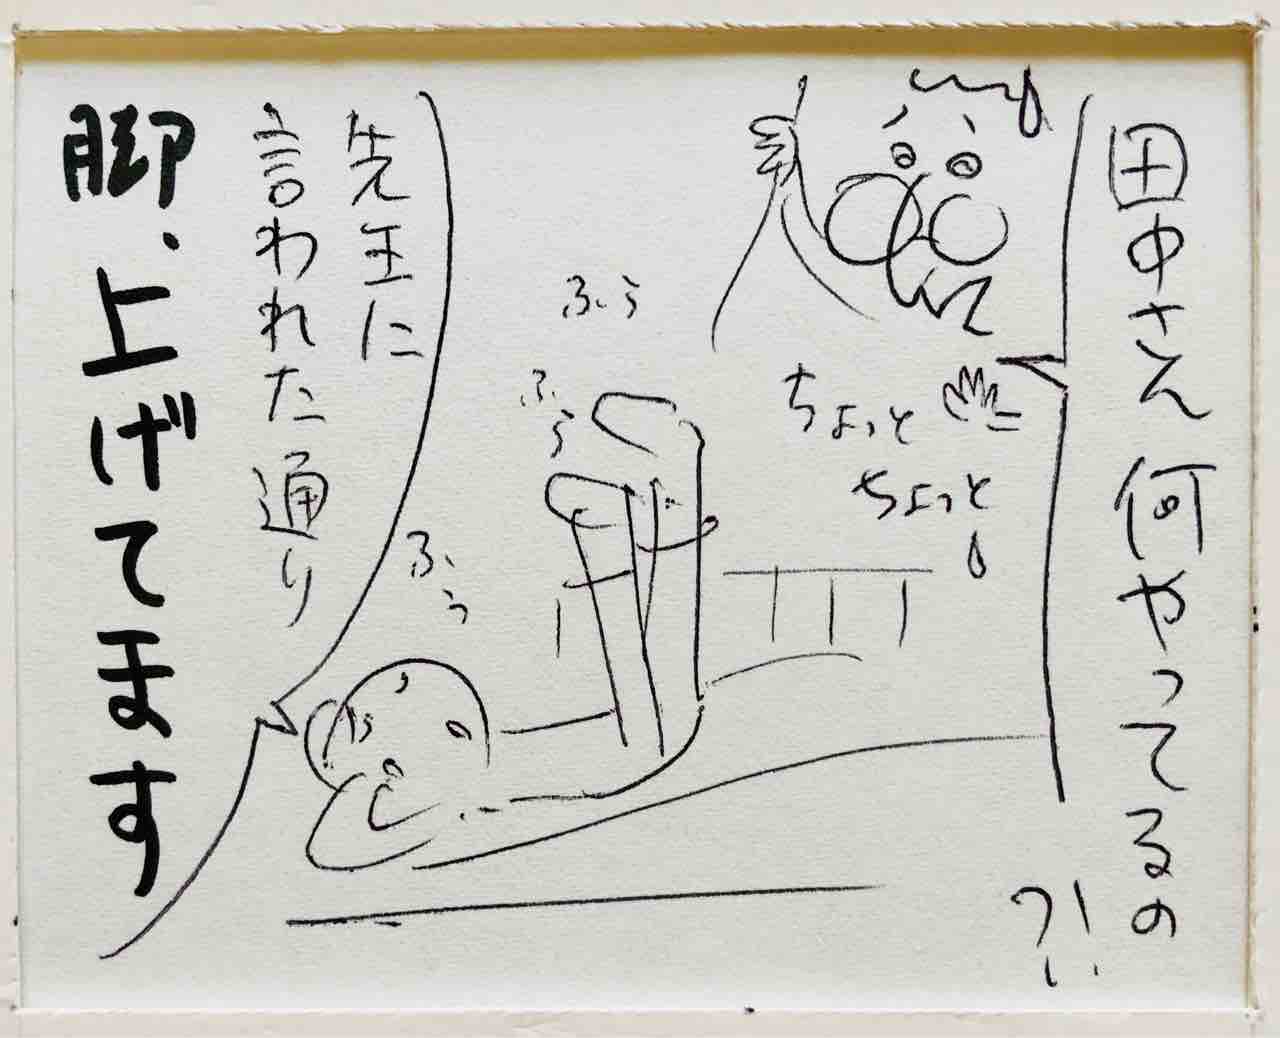 田中さん何やってるの
?!
ちょっと
ちょっと
ふぅ
ふぅ
ふぅ
先生に
言われた通り
脚、上げてます